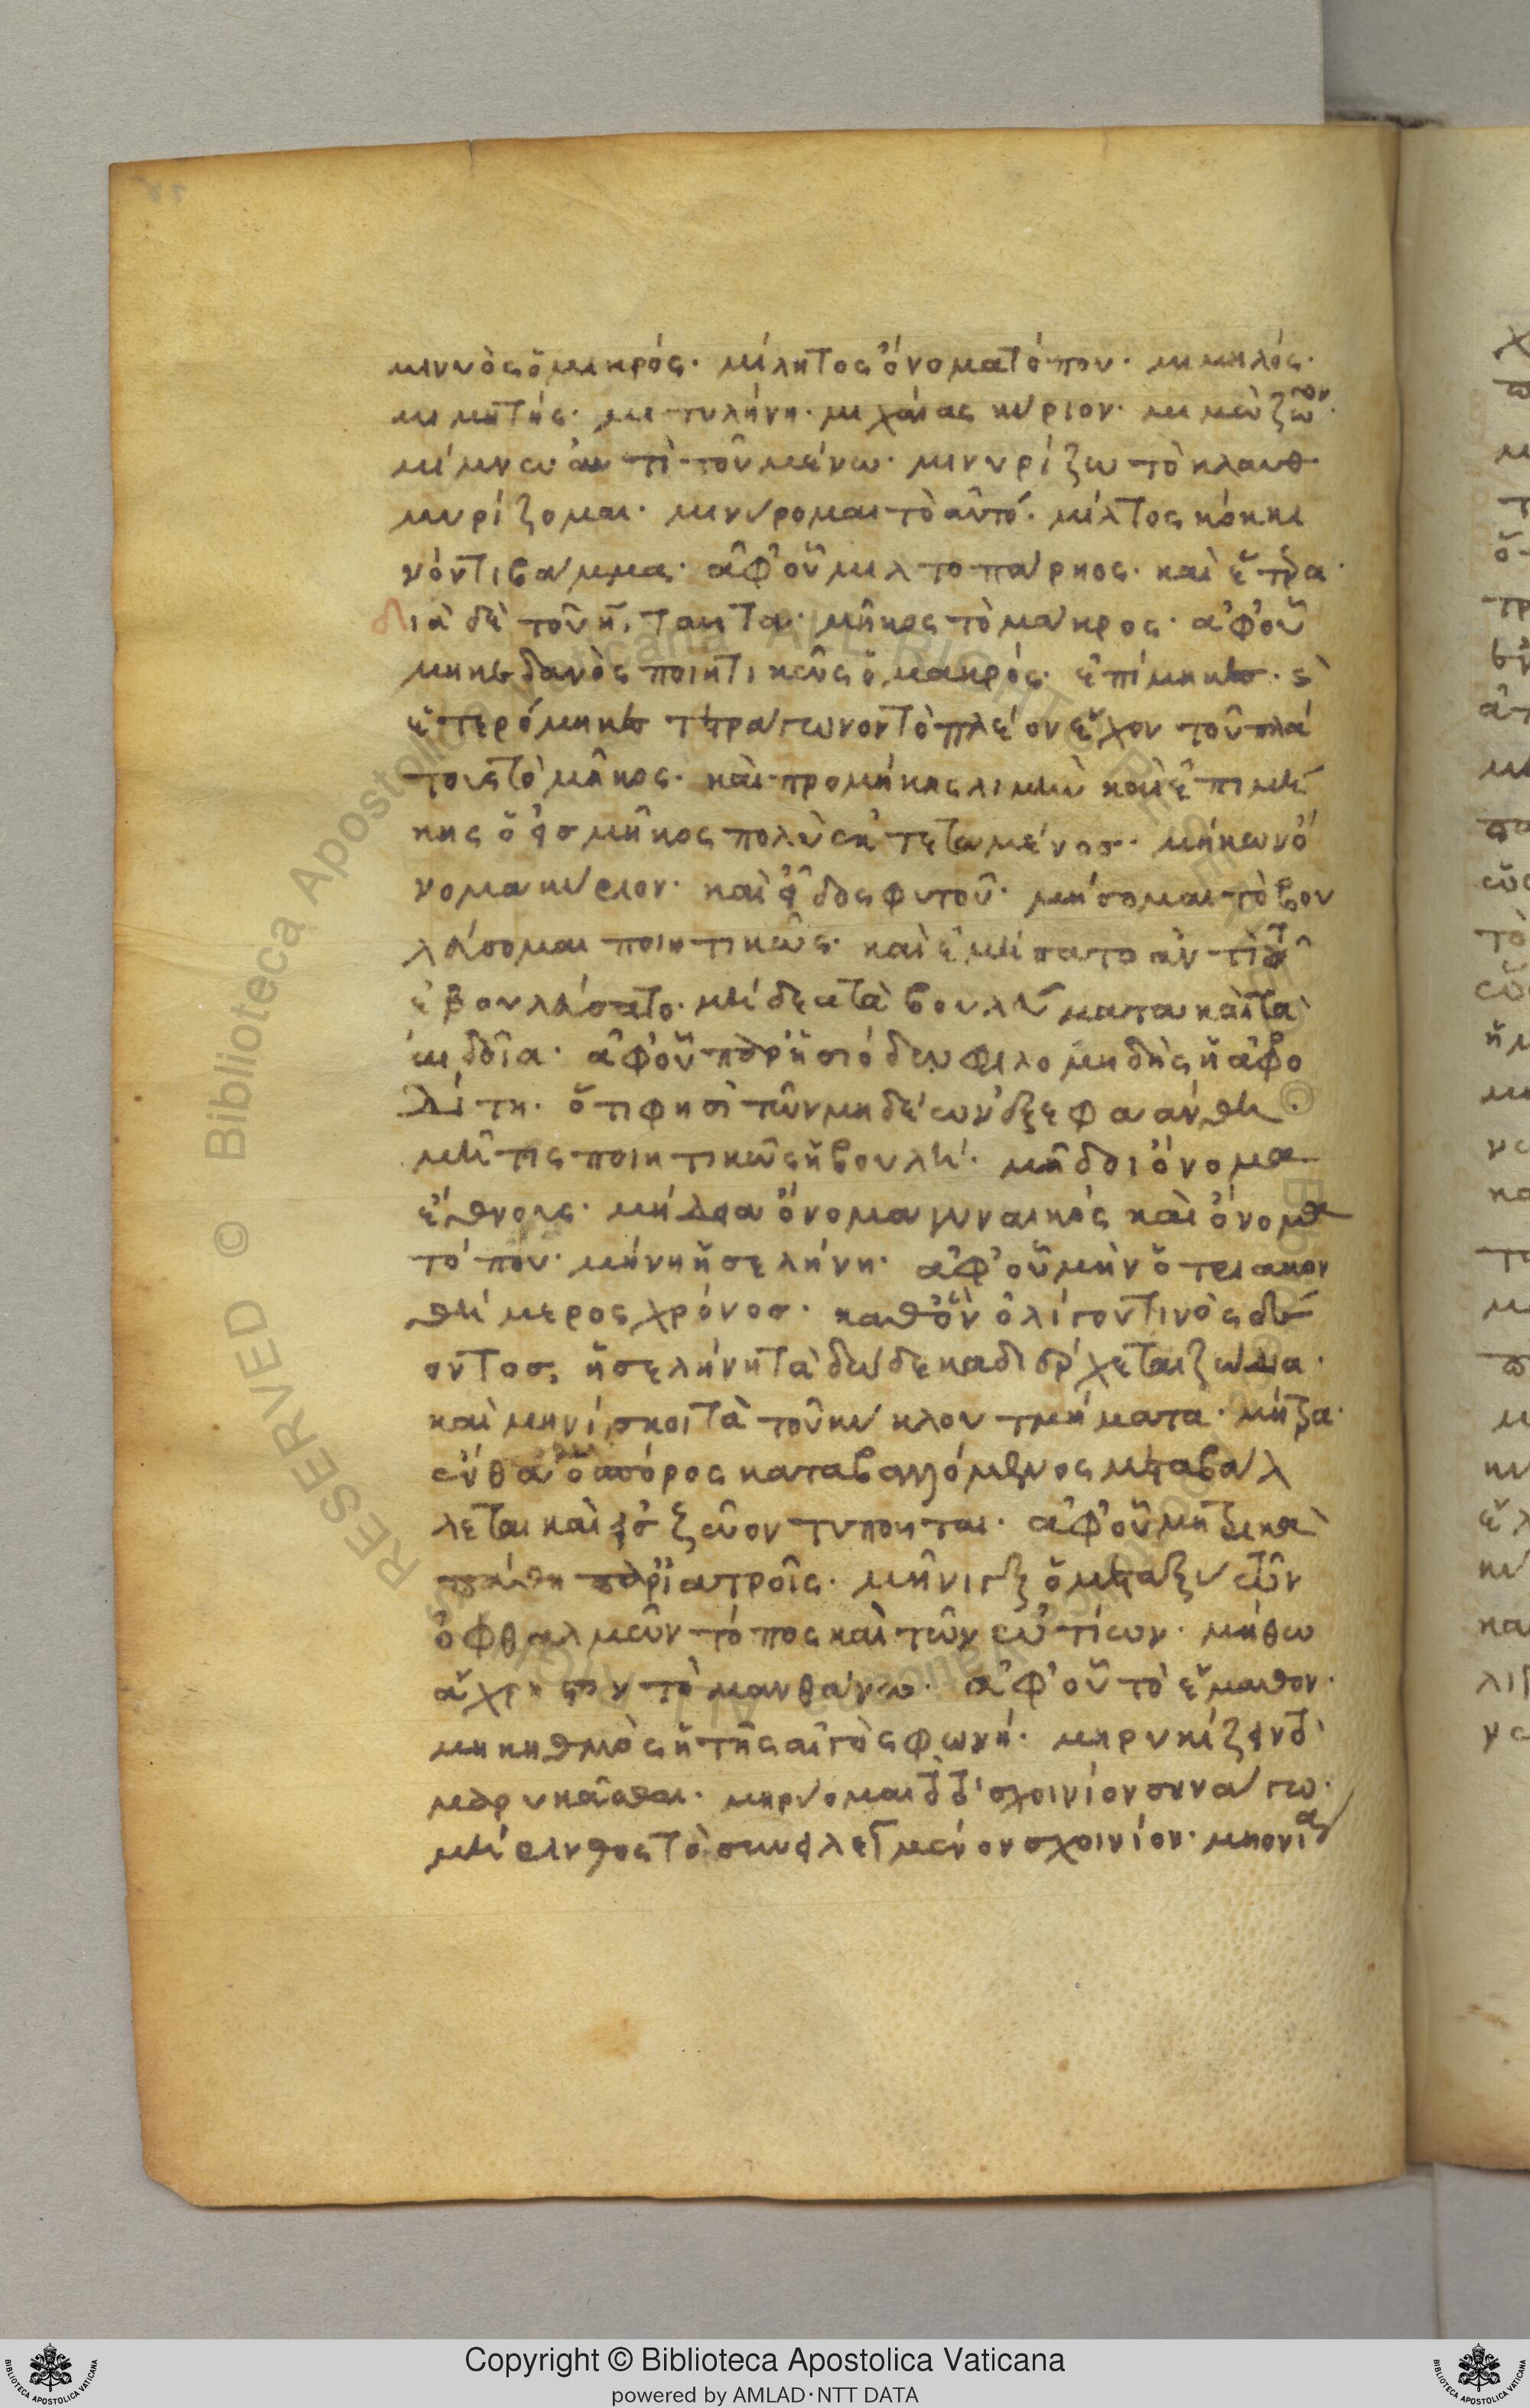 μιννὸς ὁ μικρός· μίλητος ὄνομα τόπου· μιμηλός·
μιμητής· μιτυλήνη· μιχαίας κύριον· μιμὼ ζῶον·
μίμνω ἀντὶ τοῦ μένω· μινυρίζω τὸ κλαυθ
μυρίζομαι· μινύρομαι τὸ αὐτό· μίλτος κόκκι
νόν τι βάμμα· ἀφ' οὗ μιλτοπάρηος· καὶ ἕτερα·
διὰ δὲ τοῦ η, ταῦτα· μῆκος τὸ μάκρος· ἀφ' οὗ
μηκεδανὸς ποιητικῶς ὁ μακρός· ἐπίμηκες· καὶ
ἑτερόμηκες τετράγωνον τὸ πλεῖον ἔχον τοῦ πλά
τους τὸ μῆκος· καὶ προμήκης λιμὴν καὶ ἐπιμή
κης ὁ εἰς μῆκος πολὺ ἐκτεταμένος· μήκων ὄ
νομα κύριον· καὶ εἶδος φυτοῦ· μήσομαι τὸ βου
λεύσομαι ποιητικῶς· καὶ ἐμήσατο ἀντὶ τοῦ
ἐβουλεύσατο· μήδεα τὰ βουλεύματα καὶ τὰ
αἰδοῖα· ἀφ' οὗ παρ' ἡσιόδω φιλομηδὴς ἡ ἀφρο
δίτη· ὅτι φησὶ τῶν μηδέων ἐξεφαάνθη·
μῆτις ποιητικῶς ἡ βουλή· μῆδοι ὄνομα
ἔθνους· μήδεια ὄνομα γυναικός καὶ ὄνομα
τόπου· μήνη ἡ σελήνη· ἀφ' οὗ μὴν ὁ τριακον
θήμερος χρόνος· καθ' ὃν ὀλίγου τινὸς δέ
οντος, ἡ σελήνη τὰ δώδεκα διέρχεται ζώδια·
καὶ μηνίσκοι τὰ τοῦ κύκλου τμήματα· μήτρα·
ἔνθα ὁ σπόρος καταβαλλόμενος μεταβάλ
λεται καὶ εἰς ζῶον τυποῦται· ἀφ' οὗ μητρικὰ
πάθη παρ' ἰατροῖς· μῆνιγξ ὁ μεταξὺ τῶν
ὀφθαλμῶν τόπος καὶ τῶν ὠτίων· μήθω
ἄχρηστον τὸ μανθάνω· ἀφ' οὗ τὸ ἔμαθον·
μηκηθμὸς ἡ τῆς αἰγὸς φωνή· μηρυκίζειν τὸ
μαρυκᾶσθαι· μηρύομαι τὸ τὸ σχοινίον συνάγω·
μήρινθος τὸ συνειλεγμένον σχοινίον· μηονία